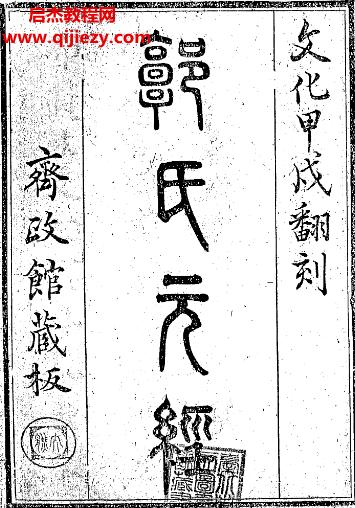 启杰教程网
www.qijiezy.com
文化甲戌翻刻
郭氏元經
齊政館藏板